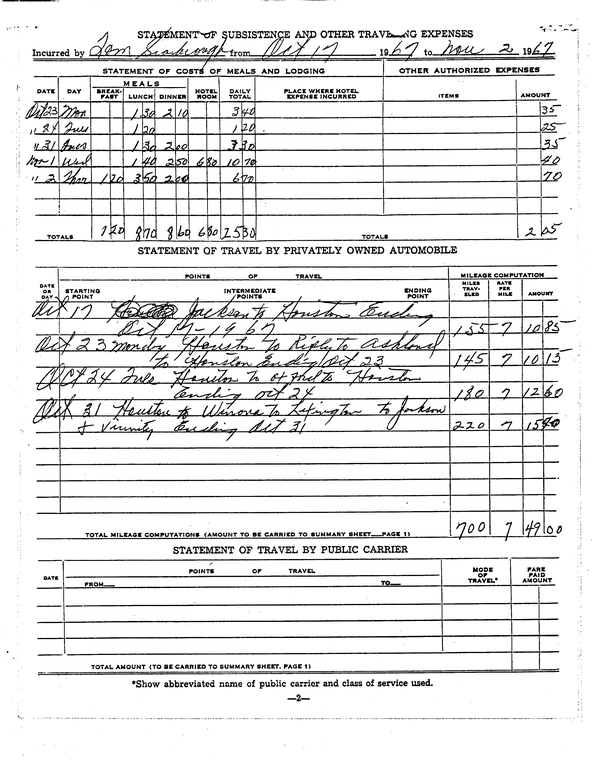 STATEMENT OF SUBSISTENCE AND OTHER TRAVELING EXPENSES
Incurred by Tom Scarbrough from Oct 17 1967 to Nov 2 1967
STATEMENT OF COSTS OF MEALS AND LODGING OTHER AUTHORIZED EXPENSES
MEALS
DATE DAY BREAK-FAST LUNCH DINNER HOTEL ROOM DAILY TOTAL PLACE WHERE HOTEL EXPENSE INCURRED ITEMS AMOUNT
Oct 23 Mon 1 30 2 10 3 40 35
" 24 Tues 1 20 1 20 25
" 31 Tues 1 30 2 00 3 30 35
Nov 1 Wed 1 40 2 50 6 80 10 70 40
" 2 Thur 1 20 3 50 2 00 6 70 70
TOTALS 1 20 8 70 8 60 6 80 25 30 TOTALS 2 05
STATEMENT OF TRAVEL BY PRIVATELY OWNED AUTOMOBILE
POINTS OF TRAVEL MILEAGE COMPUTATION
DATE OR DAY STARTING POINT INTERMEDIATE POINTS ENDING POINT MILES TRAV-ELED RATE PER MILE AMOUNT
Oct 17 Jackson to Houston Ending
Oct 17-1967 155 7 10 85
Oct 23 Monday Houston to Ripley to Ashland
to Houston Ending Oct 23 145 7 10 15
Oct 24 Tues Houston to Houston
Ending Oct 24 180 7 12 60
Oct 31 Houston to Winona to Lexington to Jackson
+ Vicinity Ending Oct 31 220 7 15 40
TOTAL MILEAGE COMPUTATIONS (AMOUNT TO BE CARRIED TO SUMMARY SHEET PAGE 1) 700 7 49 00
STATEMENT OF TRAVEL BY PUBLIC CARRIER
DATE POINTS OF TRAVEL MODE OF TRAVEL* FARE PAID AMOUNT
FROM TO
TOTAL AMOUNT (TO BE CARRIED TO SUMMARY SHEET, PAGE 1)
*Show abbreviated name of public carrier and class of service used.
—2—